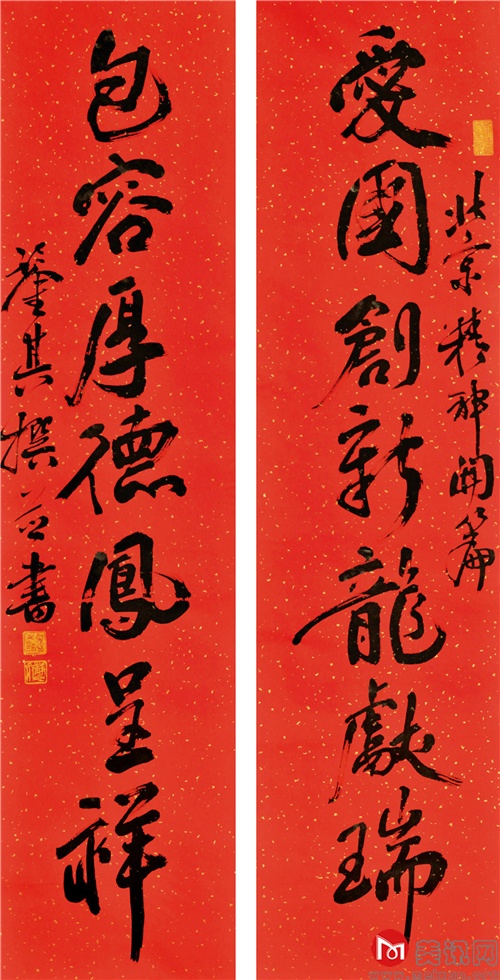 北京精神開篇
愛國創新龍獻瑞
包容厚德鳳呈祥
其撰并書
美讯网